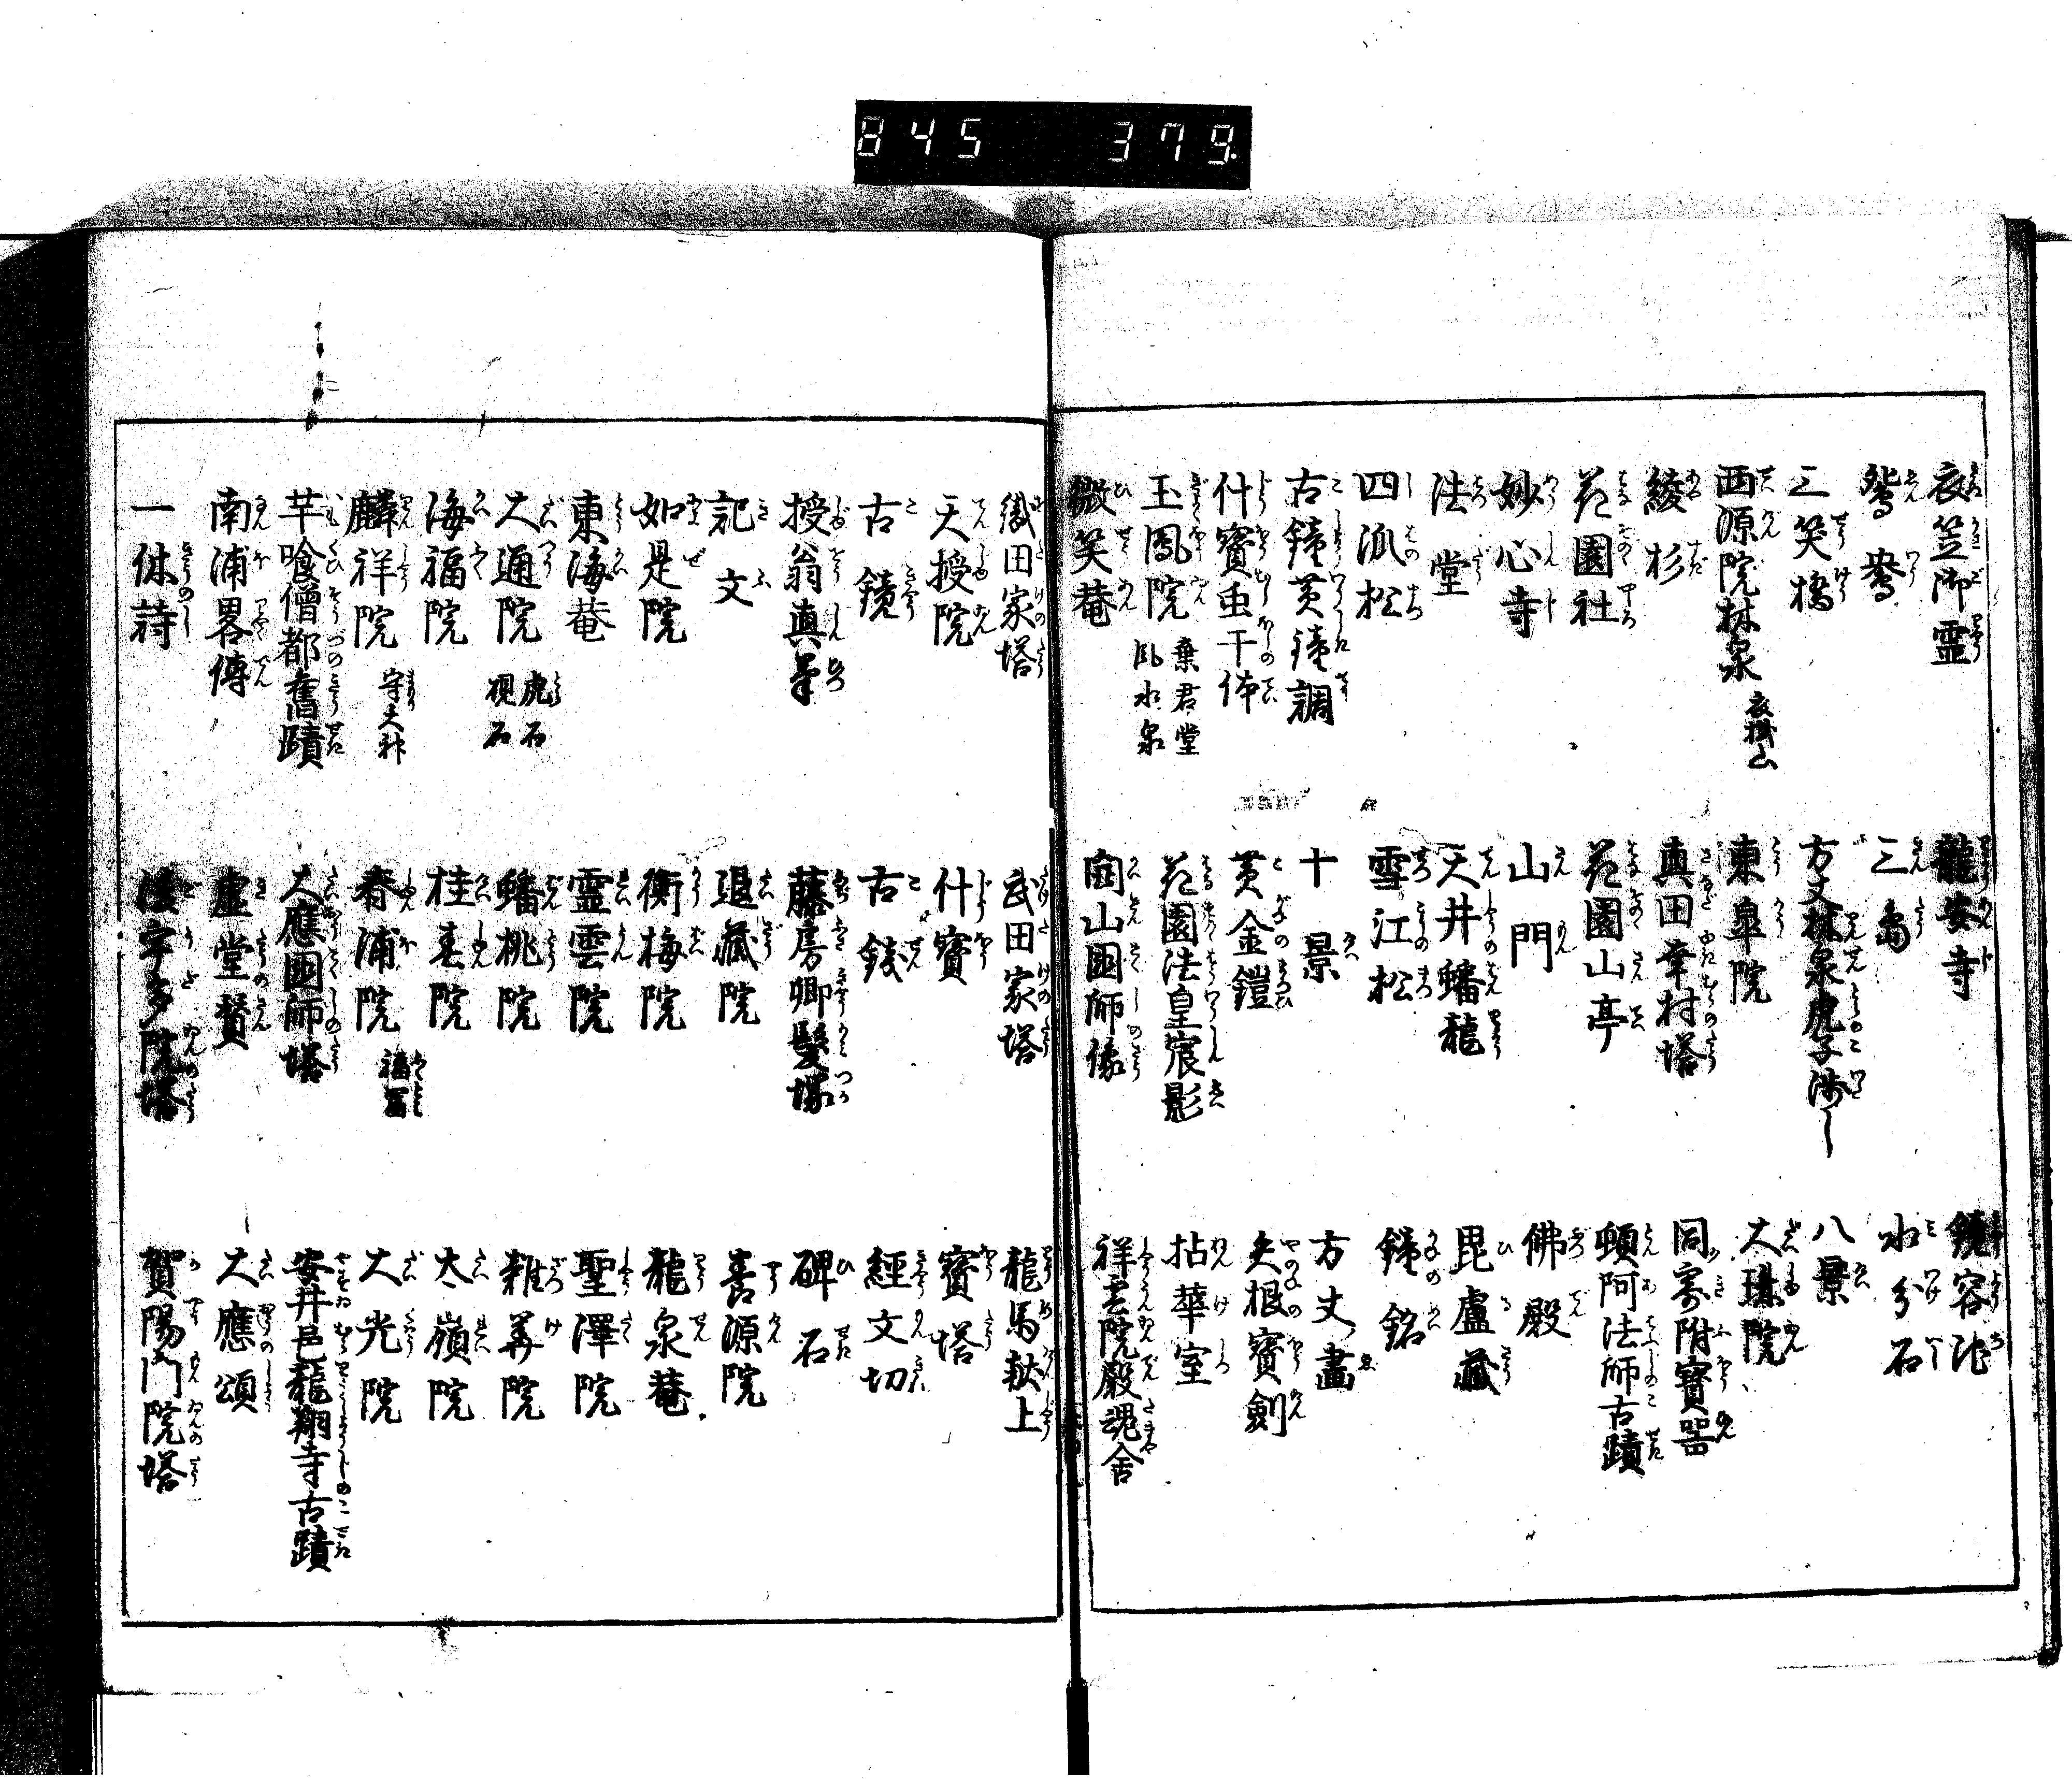 845 379.
衣笠御霊
龍安寺
鏡容池
鴛鴦
三島
水分石
三笑橋
方丈林泉虎子渉し
八景
西源院林泉 衣掛山
東皐院
大珠院
綾杉
真田幸村塔
同寄附寶噐
花園社
花園山亭
頓阿法師古蹟
妙心寺
山門
佛殿
法堂
天井蟠龍
毘盧藏
四派松
雪江松
鐘銘
古鐘黄鐘調
十景
方丈畵
什寳虫干侓
黄金鎧
矢根寳劍
玉鳳院 棄君堂 風水泉
花園法皇宸影
拈華室
微笑菴
関山國師像
祥雲院殿魂舎
織田家塔
武田家塔
龍馬鞍上
天授院
什寳
寳塔
古鏡
古錢
經文切
授翁真筆
藤房卿髮塚
碑石
記文
退藏院
養源院
如是院
衡梅院
龍泉菴
東海菴
靈雲院
聖澤院
大通院 虎石 硯石
蟠桃院
雜華院
海福院
桂春院
大嶺院
麟祥院 守天神
春浦院 福冨
大光院
芋喰僧都舊蹟
大應國師塔
安井邑龍翔寺古蹟
南浦畧傳
虚堂賛
大應頌
一休詩
後宇多院塔
賀陽門院塔